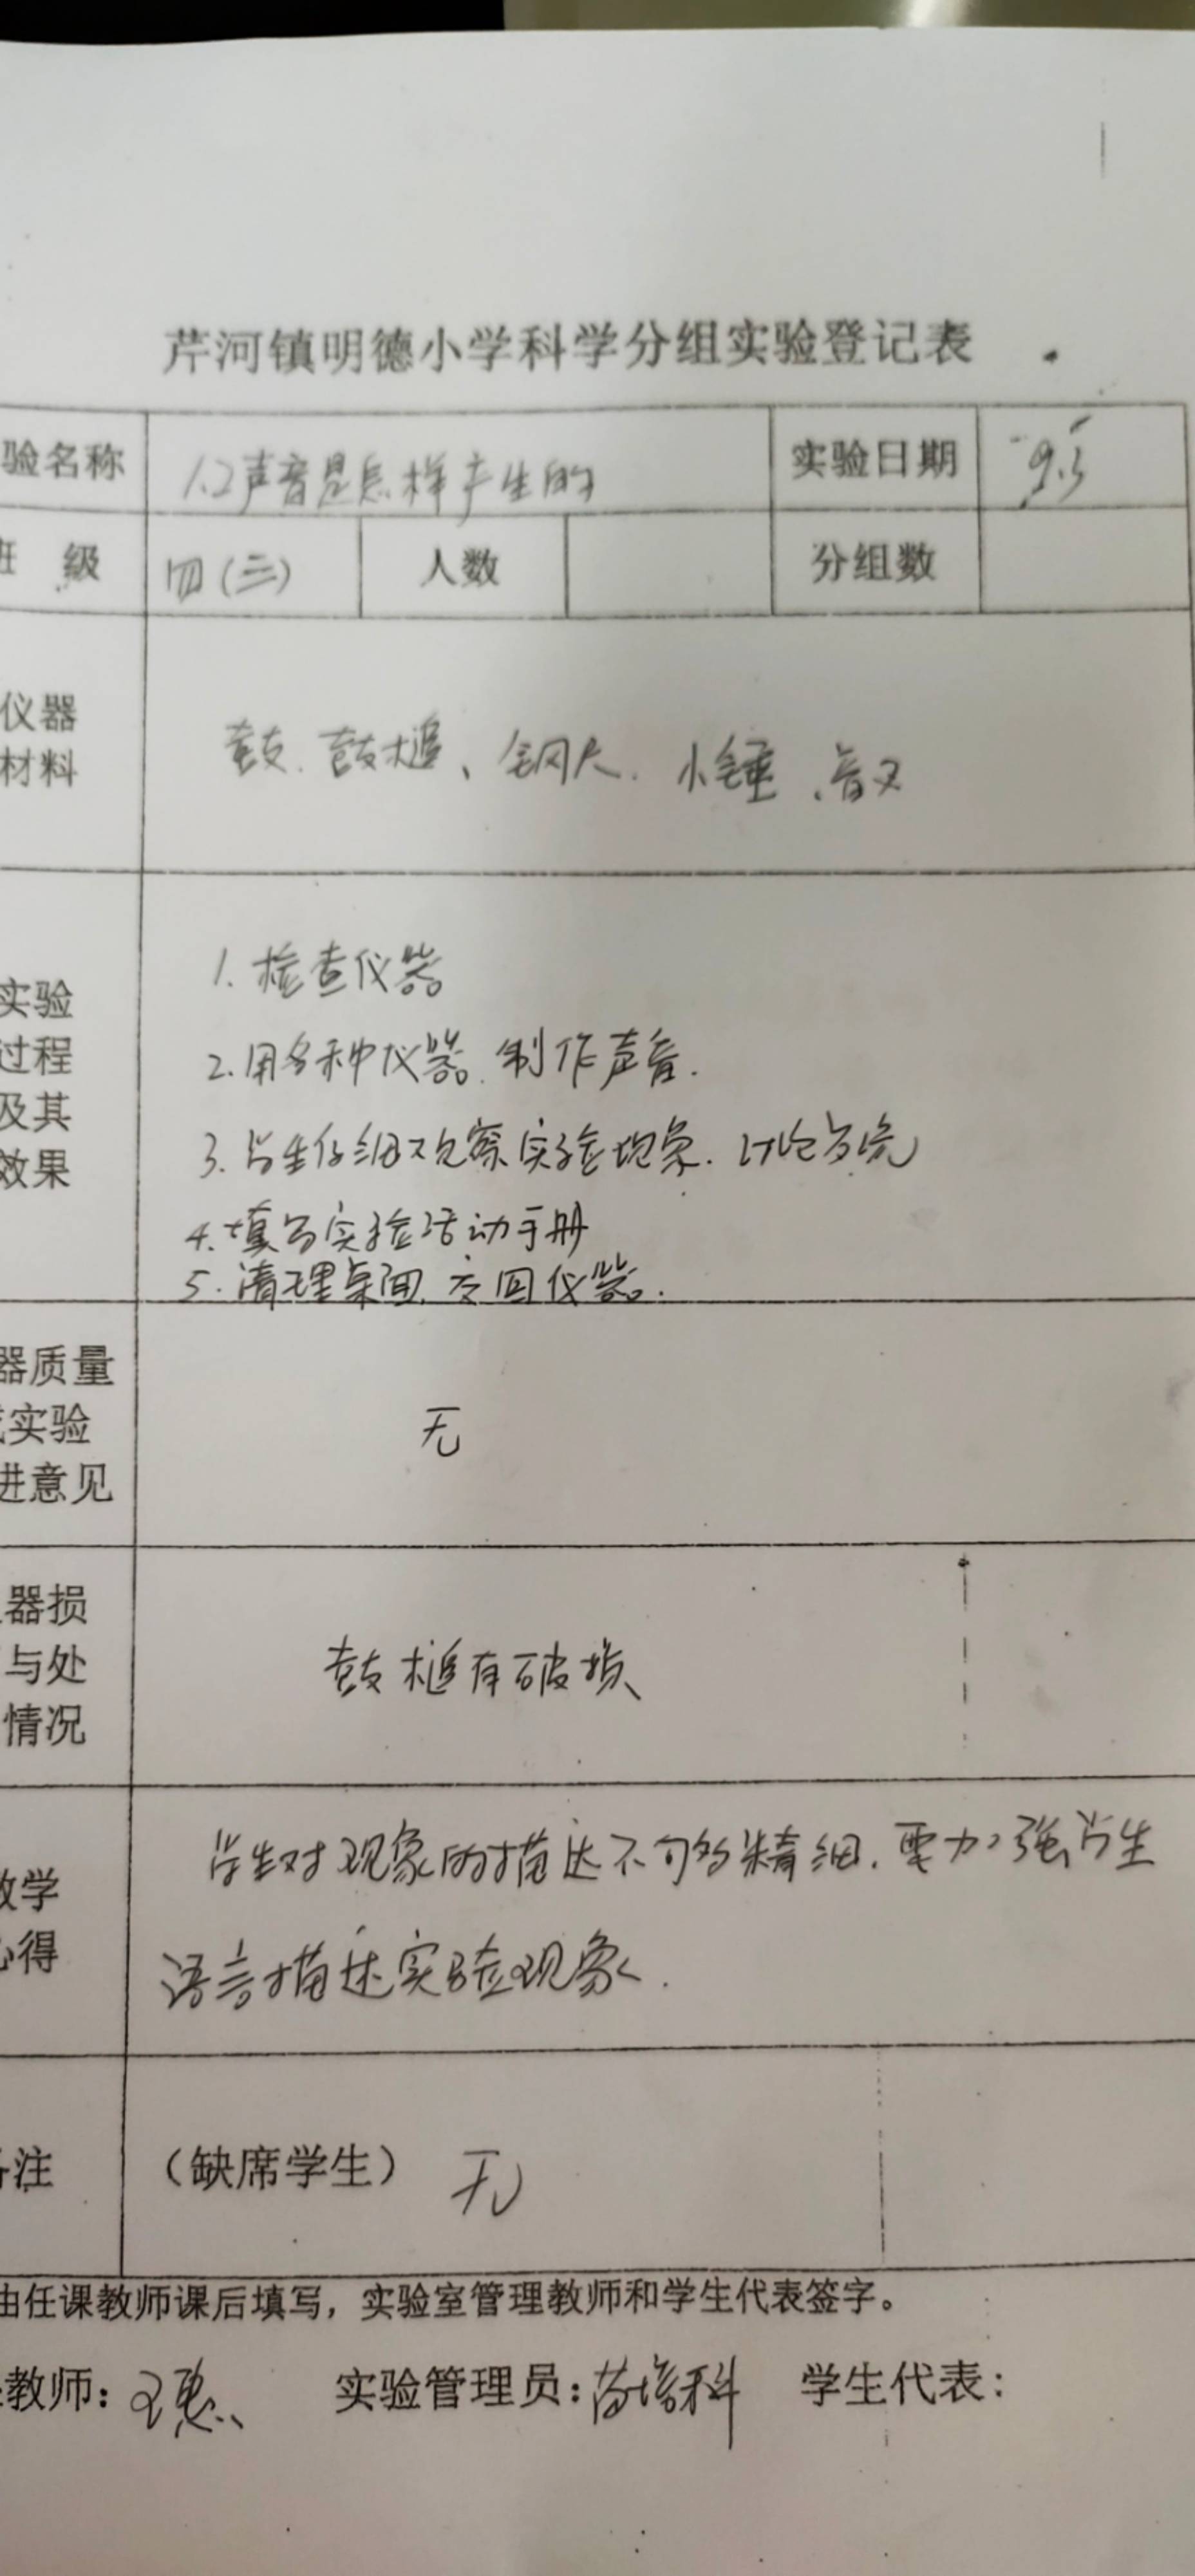 芹河镇明德小学科学分组实验登记表
验名称 1.2声音是怎样产生的 实验日期 9.3
班 级 四(三) 人数 分组数
仪器
材料
鼓、鼓槌、钢尺、小锤、音叉
实验
过程
及其
效果
1. 检查仪器
2. 用各种仪器、制作声音.
3. 学生仔细观察实验现象. 讨论交流
4. 填写实验活动手册
5. 清理桌面, 放回仪器.
器质量
实验
进意见
无
器损
与处
情况
鼓槌有破损
教学
心得
学生对现象的描述不够精细. 要加强学生
语言描述实验现象.
备注 (缺席学生) 无
由任课教师课后填写，实验室管理教师和学生代表签字。
教师: 王惠 实验管理员: 培科 学生代表: